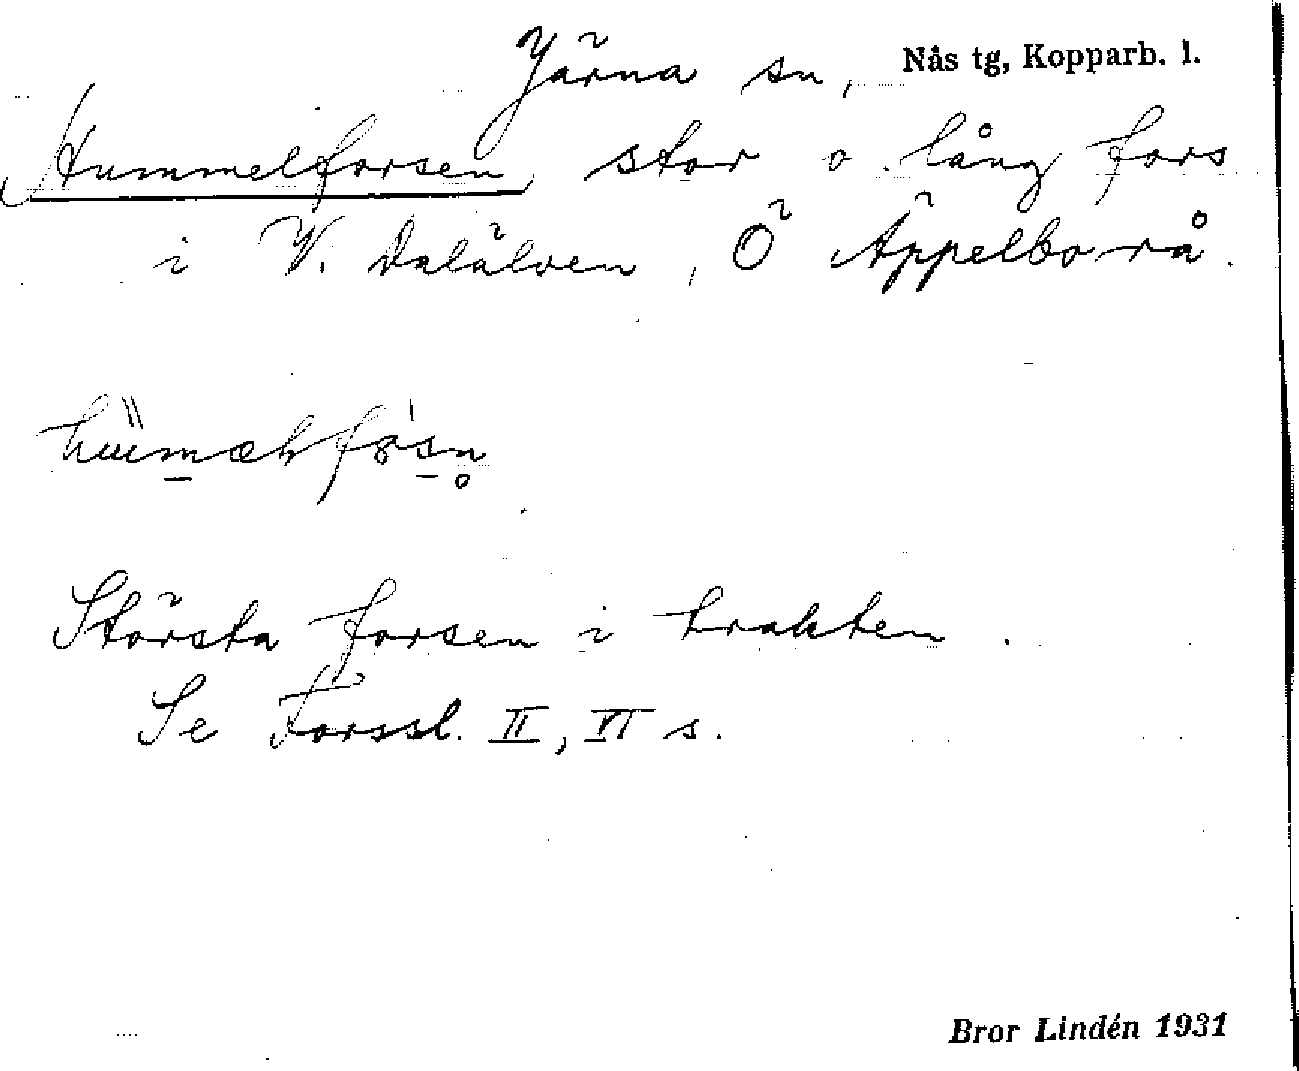 Järna sn, Nås tg, Kopparb. l.
Hummelforsen, stor o. lång fors
i V. Dalälven, Ö Äppelbo rå.
Största forsen i trakten.
Se Forssl. II, VI s.
Bror Lindén 1931